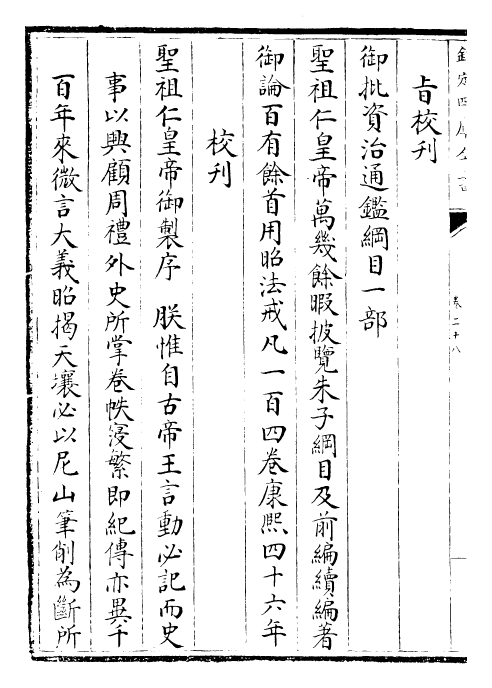 欽定四庫全書
卷二十八
旨校刊
御批資治通鑑綱目一部
聖祖仁皇帝萬幾餘暇披覽朱子綱目及前編續編著
御論百有餘首用昭法戒凡一百四卷康熙四十六年
校刊
聖祖仁皇帝御製序　朕惟自古帝王言動必記而史
事以興顧周禮外史所掌卷帙寖繁即紀傳亦異千
百年來微言大義昭揭天壤必以尼山筆削為斷所